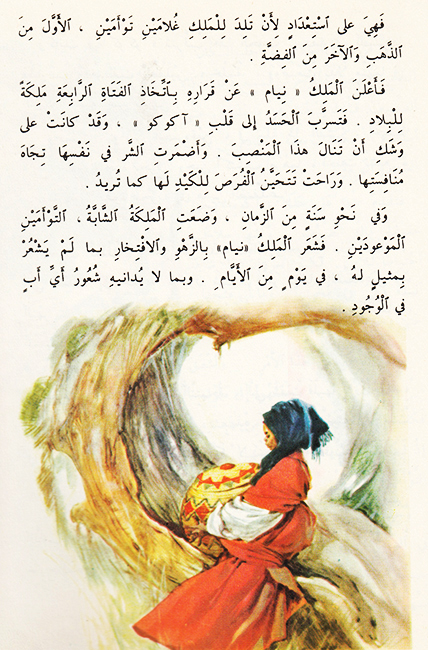 فَهِيَ على ٱسْتِعْدَادٍ لِأَنْ تَلِدَ لِلْمَلِكِ غُلامَيْنِ تَوْأَمَيْنِ ، ٱلْأَوَّلَ مِنَ
ٱلذَّهَبِ وَٱلآخَرَ مِنَ ٱلفِضَّةِ .
فَأَعْلَنَ ٱلْمَلِكُ « نِيام » عَنْ قَرَارِهِ بِٱتِّخَاذِ ٱلفَتَاةِ ٱلرَّابِعَةِ مَلِكَةً
لِلْبِلادِ . فَتَسرَّبَ ٱلْحَسَدُ إلى قَلْبِ « آكوكو » ، وَقَدْ كانَتْ على
وَشْكِ أَنْ تَنَالَ هذَا ٱلْمَنْصِبَ . وَأَضْمَرتِ ٱلشَّر في نَفْسِهَا تِجَاهَ
مُنَافِسَتِها . وَرَاحَتْ تَتَحَيَّنُ ٱلْفُرَصَ لِلْكَيْدِ لَها كما تُريدُ .
وَفي نَحْوِ سَنَةٍ مِنَ ٱلزَّمانِ ، وَضَعَتِ ٱلْمَلِكَةُ ٱلشَّابَّةُ ، ٱلتَّوْأَمَيْنِ
ٱلْمَوعُودَيْنِ . فَشَعَر ٱلْمَلِكُ «نيام» بِالزَّهْوِ وٱلافْتِخارِ بما لَمْ يَشْعُرْ
بِمثيلٍ لهُ ، في يَوْمٍ مِنَ ٱلأَيَّامِ . وبما لا يُدانيهِ شُعُورُ أَيِّ أَبٍ
في ٱلْوُجُودِ .